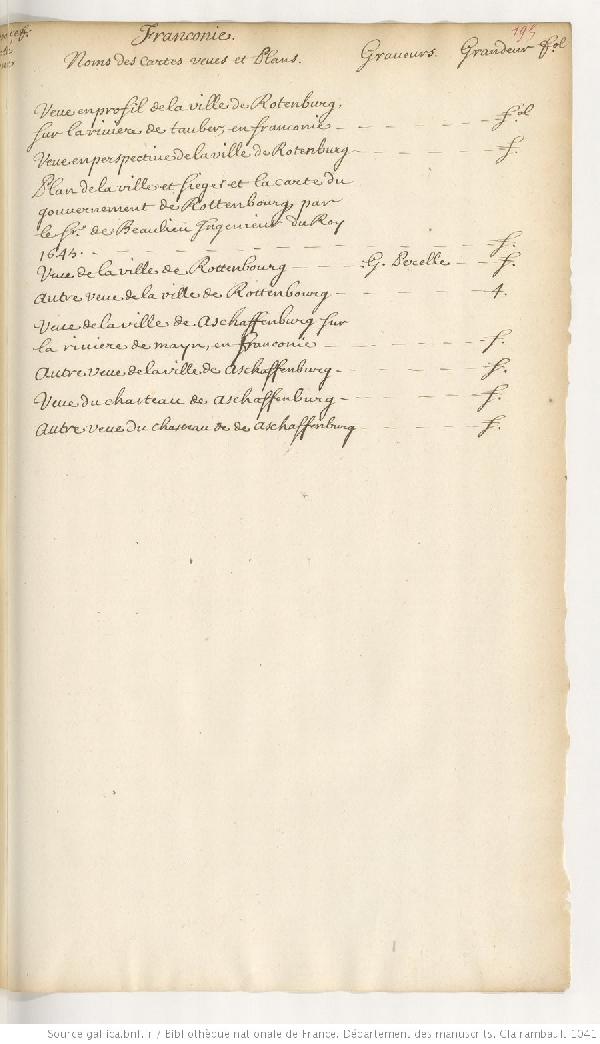 Franconie.
195
Noms des Cartes veues et Plans. Graveurs. Grandeur fol
Veue en profil de la ville de Rotenburg,
sur la riviere de tauber, en franconie - - - - - fol
Veue en perspective de la ville de Rotenburg - - - - - f.
Plan de la ville et sieges et la carte du
gouvernement de Rottenbourg, par
le Sr. de Beaulieu Ingenieur du Roy
1645. - - - - - f.
Veue de la ville de Rottenbourg - - - G. Perelle - - f.
Autre veue de la ville de Rottenbourg - - - - - 4.
Veue de la ville de Aschaffenburg sur
la riviere de mayn, en franconie - - - - - f.
Autre veue de la ville de Aschaffenburg - - - - - f.
Veue du chasteau de Aschaffenburg - - - - - f.
Autre veue du chasteau de de Aschaffenburg - - - - - f.
Source gallica.bnf.fr / Bibliothèque nationale de France. Département des manuscrits. Clairambault 1041